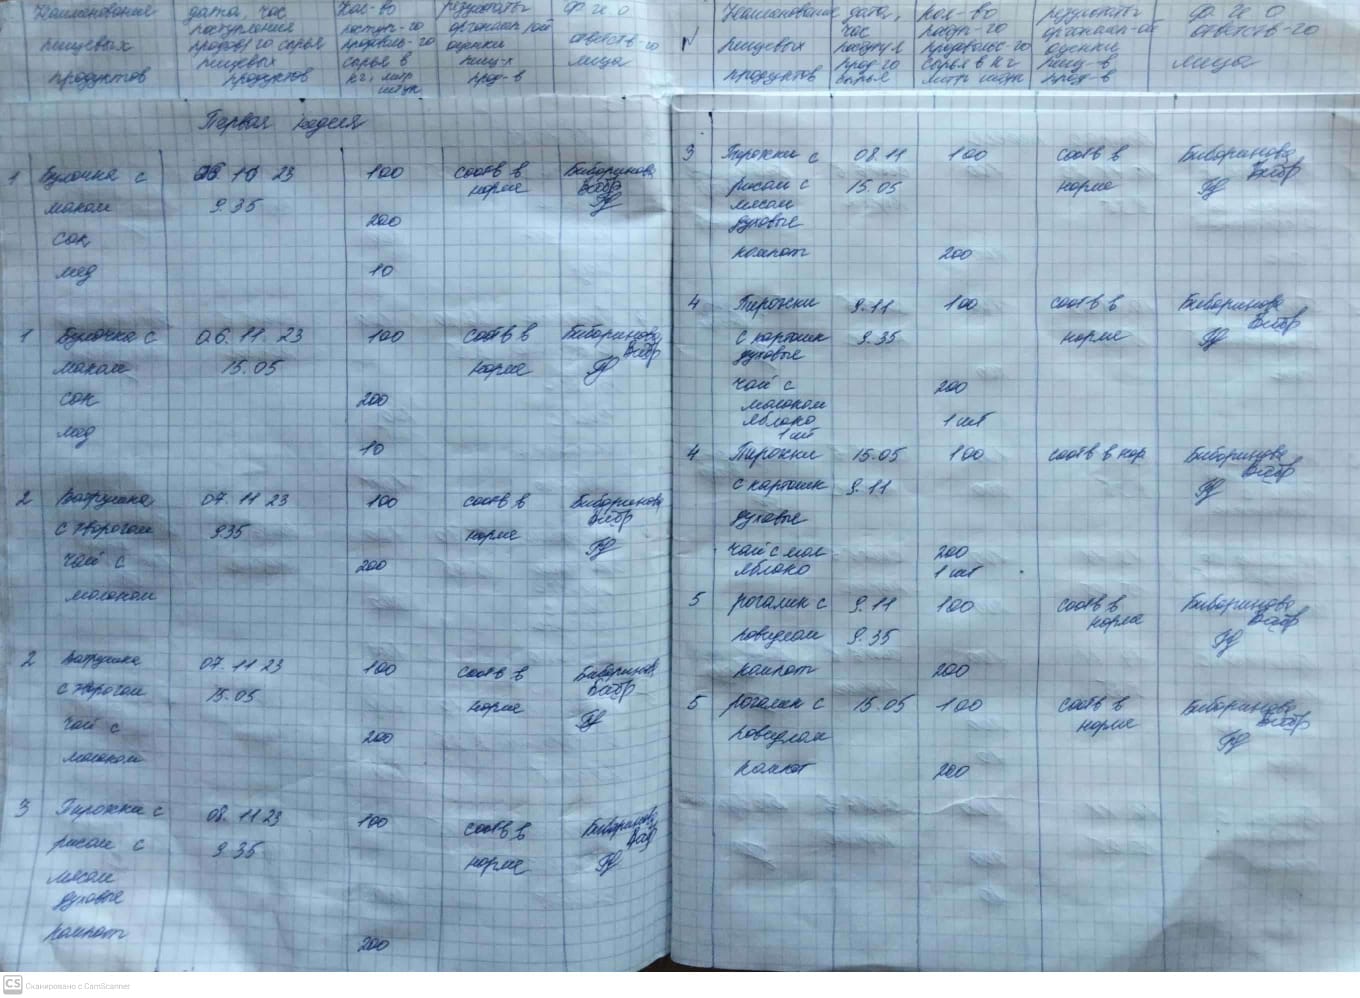 Наименование дата, час Кол-во результаты Ф И О
поступления поступ-го органолептой
пищевых продов/го сырья продоволь-го оценки ответств-го
пищевых сырья в пищ-х лица
продуктов продуктов кг, литр прод-в
штук
Первая неделя
1 Булочка с 10 23 100 соотв в Биборинова
маком 9.35 норме
сок 200
мед 10
1 Булочка с 06.11.23 100 соотв в Биборинова
маком 15.05 норме
сок 200
мед
10
2 Ватрушка 07.11 23 100 соотв в Биборинова
с творогом 935 норме
чай с 200
молоком
2 Ватрушка 07.11 23 100 соотв в Биборинов
с творогом 15.05 норме
чай с 200
молоком
3 Пирожки с 08.11 23 100 соотв в Биборинова
рисом с 9 35 норме
мясом
духовые
компот 200
Наименование дата, кол-во результаты Ф И О
час поступ-го органолеп-ой ответств-го
N пищевых поступл продовольс-го оценки
прод-го сырья в кг пищ-в лица
продуктов сырья литр штук прод-в
3 Пирожки с 08.11 100 соотв в Биборинова
рисом с 15.05 норме
мясом
духовые
компот 200
4 Пирожки 9.11 100 соотв в Биборинова
с картошк 9.35 норме
духовые
чай с 200
молоком
яблоко 1 шт
1 шт
4 Пирожки 15.05 100 соотв в нор Биборинова
с картошк 9.11
духовые
чай с мол 200
яблоко 1 шт
5 рогалик с 9.11 100 соотв в Биборинова
норме
повидлом 9.35
компот 200
5 рогалик с 15.05 100 соотв в Биборинова
норме
повидлом
компот 200
CS Сканировано с CamScanner